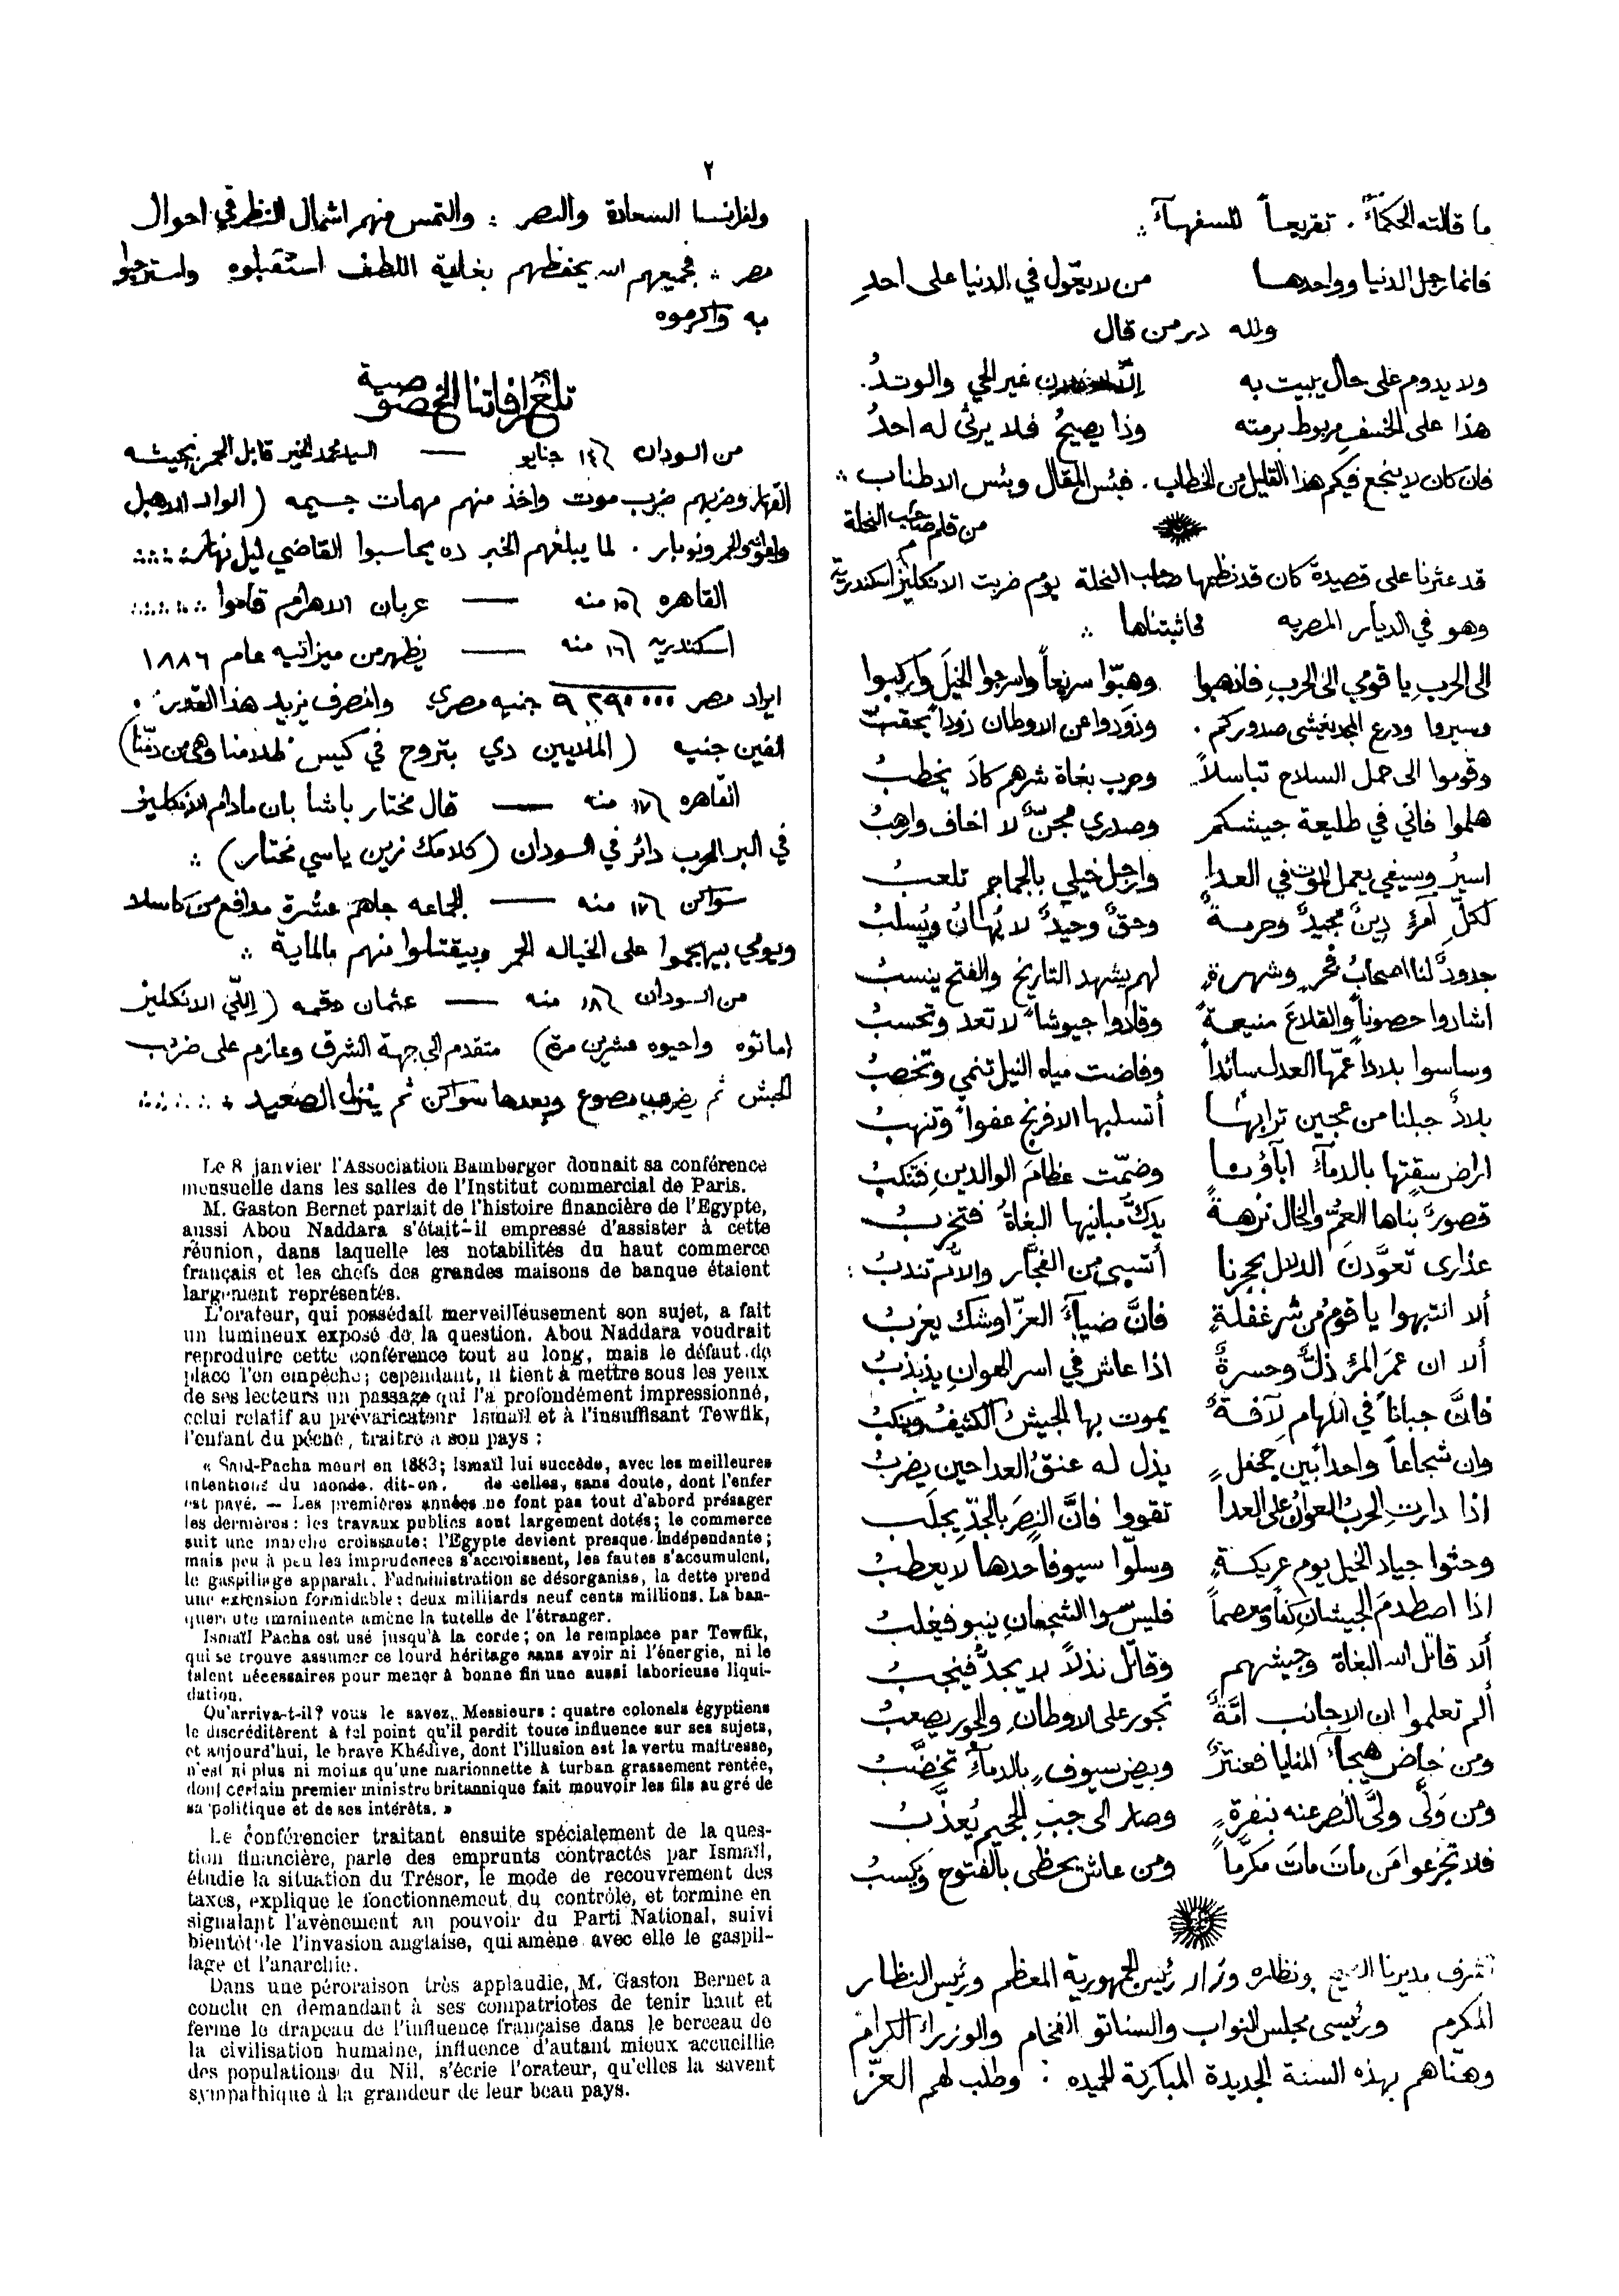 ٢
ما قالته الحكمآءُ . تقريعاً للسفهآء ∴
فانما رجل الدنيا وواحدها من لا يعوّل في الدنيا على احدِ
ولله در من قال
ولا يدوم على حال يبيت به إلّا غير الحي والوتدُ .
هذا على الخسفِ مربوط برمته وذا يصيحُ فلا يرثى له احدُ
فان كان لا ينجع فيكم هذا القليل من الخطاب . فبئس المقال وبئس الاطناب ∴
من قلم صاحب النحلة
قد عثرنا على قصيدة كان قد نظمها صاحب النحلة يوم ضربت الانكليز اسكندرية
وهو في الديار المصريه فاثبتناها ∴
الى الحربِ يا قومي الى الحربِ فاذهبوا وهبّوا سريعاً واسرجوا الخيلَ واركبوا
وسيروا ودرع المجد يغشى صدوركم . وذودوا عن الاوطان ذوداً
وقوموا الى حمل السلاح تباسلاً وحرب بغاة شرهم كادَ يخطبُ
هلموا فاني في طليعة جيشكم وصدري مجنٌّ لا اخاف وارهبُ
اسيرُ وسيفي يعمل الموت في العدا وارجل خيلي بالجماجم تلعبُ
لكلّ آمرءٍ دينٌ مجيدٌ وحرمةٌ وحقٌ وحيدٌ لا يُهانُ ويُسلبُ
جدودٌ لنا اصحابُ فخرٍ وشهرةٍ لهم يشهد التاريخ والفتح ينسبُ
اشادوا حصوناً والقلاعَ منيعةً وقادوا جيوشاً لا تعد وتحسبُ
وساسوا بلاداً عمّها العدل سائداً وفاضت مياه النيل تنمي وتخصبُ
بلادٌ جبلنا من عجين ترابها أتسلبها الافرنج عفواً وتنهبُ
اراضٍ سقتها بالدمآءِ ابآؤنا وضمّت عظامَ الوالدينِ فتنكبُ
قصورٌ بناها العمُّ والخال نزهةً يدكُّ مبانيها البغاةُ فتخربُ
عذارى تعوَّدنَ الدلال بحجرنا أتسبى من الفجّار والامُّ تندبُ :
ألا انتبهوا يا قومُ من شر غفلةٍ فانَّ ضيآءَ العزّ اوشك يغربُ
ألا ان عمرَ المرءِ ذلٌّ وحسرةٌ اذا عاش في اسر الهوانِ يذبذبُ
فانَّ جباناً في اللهام لآفةٌ يموت بها الجيشُ الكثيفُ وينكبُ
وان شجاعاً واحداً بين جحفلٍ يذل له عنقُ العدا حين يضربُ
اذا دارتِ الحربُ العوانُ على العدا تقووا فانَّ النصرَ بالجدّ يجلبُ
وحثوا جياد الخيل يوم عريكةٍ وسلّوا سيوفاً حدها لا يعطبُ
اذا اصطدمَ الجيشانِ كفاً ومعصماً فليس سوا الشجعانِ ينبو فيغلبُ
ألا قاتل الله البغاة وجيشهم وقاتل نذلاً لا يجدُّ فينجبُ
ألم تعلموا ان الاجانب امّةٌ تجور على الاوطانِ والجور يصعبُ
ومن خاض هيجآءَ المنايا فعنترٌ وبيض سيوفٍ بالدمآءِ تخضّبُ
ومن وَلَّى ولَّى النصر عنه بنفرةٍ وصار الى جبِّ الجحيم يُعذّبُ
فلا تجزعوا مَن ماتَ ماتَ مكرَّماً ومن عاش يحظى بالفتوح ويكسبُ
تشرف مديرنا ونظاره وزار رئيس الجمهورية المعظم ورئيس النظار
المكرم ورئيسى مجلس النواب والسناتو الفخام والوزراء الكرام
وهناهم بهذه السنة الجديدة المباركة الحميده : وطلب لهم العزّ
ولفرانسا السعادة والنصر : والتمس منهم اشمال النظر في احوال
مصر ∴ فجميعهم الله يحفظهم بغاية اللطف استقبلوه واسترحبوا
به واكرموه
تلغرافاتنا الخصوصية
من السودان ١٤ جنايو — السيد محمد الخير قابل الحمر بجيشه
القهار وضربهم ضرب موت واخذ منهم مهمات جسيمه ( الواد الاهبل
واخواته الحمر ونوبار . لما يبلغهم الخبر ده يحاسبوا القاضي ليل نهار ∴∴
القاهره ١٥ منه — عربان الاهرام قاموا ∴∴
اسكندريه ١٦ منه — يظهر من ميزانيه عام ١٨٨٦
ايراد مصر ٩٢٩٠٠٠٠ جنيه مصري والمصرف يزيد هذا القدر .
الفين جنيه ( الملايين دي بتروح في كيس ظلامنا وهى من دمّنا )
القاهره ١٧ منه — قال مختار باشا بان مادام الانكليز
في البر الحرب دائر في السودان ( كلامك زين ياسي مختار ) ∴
سواكن ١٧ منه — الجماعه جاهم عشرة مدافع من كاسلا
ويومي بيهجموا على الخياله الحمر وبيقتلوا منهم بالماية ∴
من السودان ١٨ منه — عثمان دقمه ( إللّي الانكليز
اماتوه واحيوه عشرين مرة ) متقدم الى جهة الشرق وعازم على ضرب
الحبش ثم يضرب مصوع وبعدها سواكن ثم ينزل الصعيد ∴∴
Le 8 janvier l'Association Bamberger donnait sa conférence
mensuelle dans les salles de l'Institut commercial de Paris.
M. Gaston Bernet parlait de l'histoire financière de l'Egypte,
aussi Abou Naddara s'était-il empressé d'assister à cette
réunion, dans laquelle les notabilités du haut commerce
français et les chefs des grandes maisons de banque étaient
largement représentés.
L'orateur, qui possédait merveilleusement son sujet, a fait
un lumineux exposé de la question. Abou Naddara voudrait
reproduire cette conférence tout au long, mais le défaut de
place l'en empêche; cependant, il tient à mettre sous les yeux
de ses lecteurs un passage qui l'a profondément impressionné,
celui relatif au prévaricateur Ismaïl et à l'insuffisant Tewfik,
l'enfant du péché, traître à son pays :
« Saïd-Pacha meurt en 1883; Ismaïl lui succède, avec les meilleures
intentions du monde, dit-on, de celles, sans doute, dont l'enfer
est pavé. — Les premières années ne font pas tout d'abord présager
les dernières : les travaux publics sont largement dotés; le commerce
suit une marche croissante; l'Egypte devient presque indépendante;
mais peu à peu les imprudences s'accroissent, les fautes s'accumulent,
le gaspillage apparaît, l'administration se désorganise, la dette prend
une extension formidable : deux milliards neuf cents millions. La ban-
queroute imminente amène la tutelle de l'étranger.
Ismaïl Pacha est usé jusqu'à la corde; on le remplace par Tewfik,
qui se trouve assumer ce lourd héritage sans avoir ni l'énergie, ni le
talent nécessaires pour mener à bonne fin une aussi laborieuse liqui-
dation.
Qu'arriva-t-il? vous le savez, Messieurs : quatre colonels égyptiens
le discréditèrent à tel point qu'il perdit toute influence sur ses sujets,
et aujourd'hui, le brave Khédive, dont l'illusion est la vertu maîtresse,
n'est ni plus ni moins qu'une marionnette à turban grassement rentée,
dont certain premier ministre britannique fait mouvoir les fils au gré de
sa politique et de ses intérêts. »
Le conférencier traitant ensuite spécialement de la ques-
tion financière, parle des emprunts contractés par Ismaïl,
étudie la situation du Trésor, le mode de recouvrement des
taxes, explique le fonctionnement du contrôle, et termine en
signalant l'avènement au pouvoir du Parti National, suivi
bientôt de l'invasion anglaise, qui amène avec elle le gaspil-
lage et l'anarchie.
Dans une péroraison très applaudie, M. Gaston Bernet a
conclu en demandant à ses compatriotes de tenir haut et
ferme le drapeau de l'influence française dans le berceau de
la civilisation humaine, influence d'autant mieux accueillie
des populations du Nil, s'écrie l'orateur, qu'elles la savent
sympathique à la grandeur de leur beau pays.